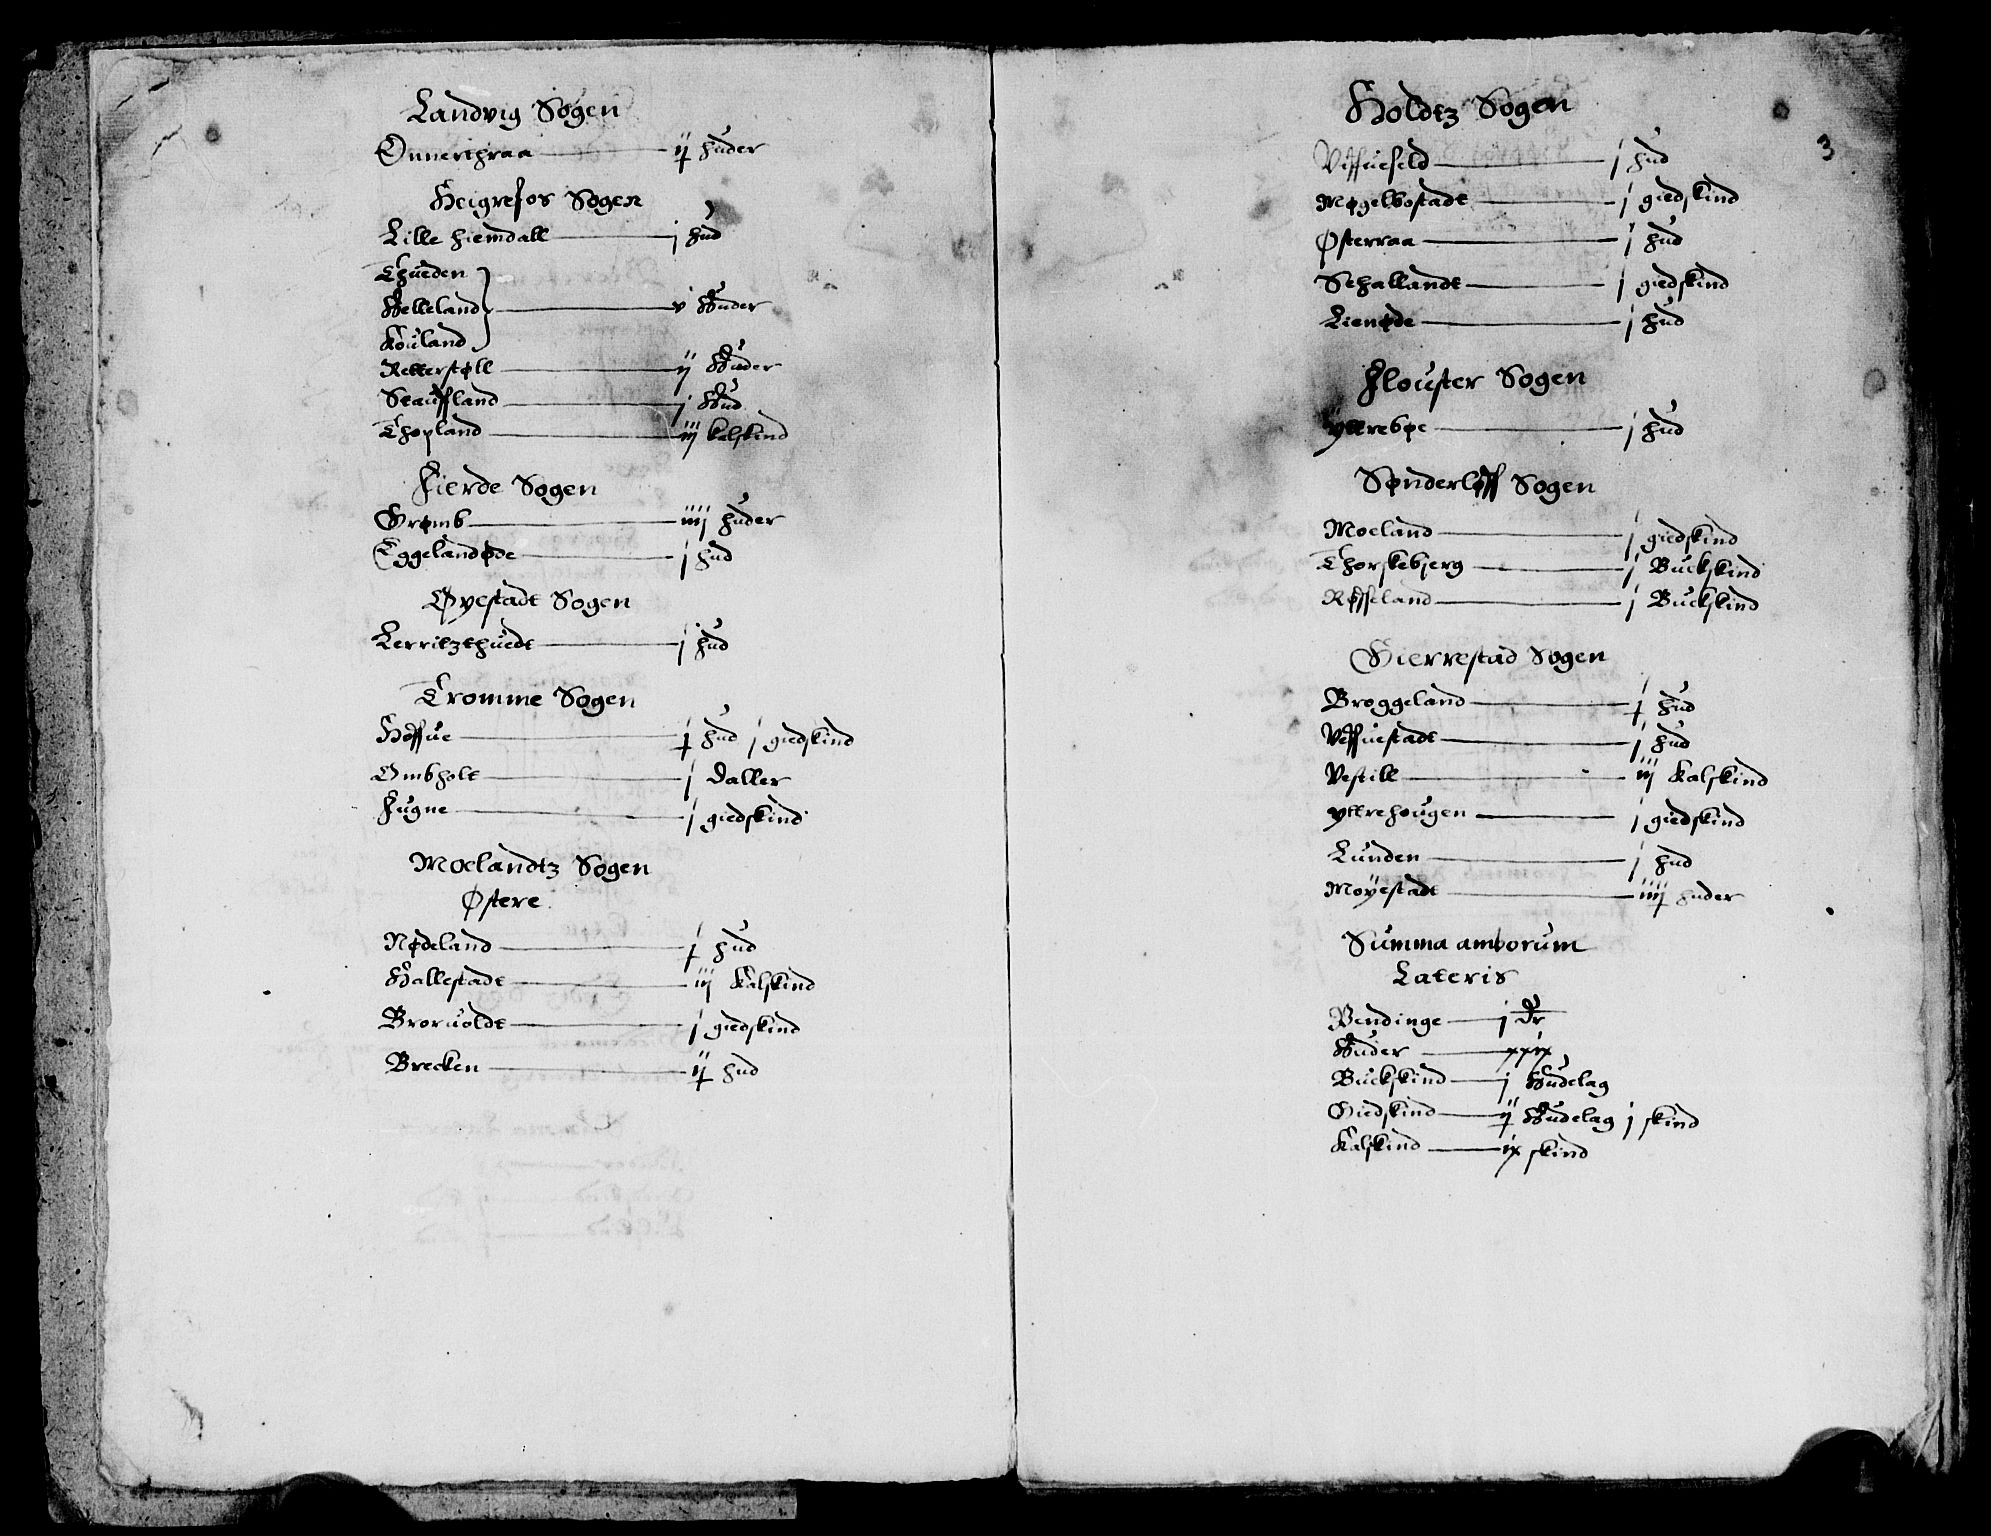 Landvig Sogen
Onnerthraa ij huder
Heigrefos Sogen
Lille hiemdall j hud
Thueden
Helleland v Huder
Kouland
Retterstøll ij Huder
Stauffland j Hud
Thopland iij kalskind
Fierde Sogen
Grømb iiij huder
Eggelandøde j hud
Øyestadt Sogen
Lerritzthuedt j hud
Tromme Sogen
Hoffue j hud j giedskind
Ombholt j daller
Fugne j giedskind
Moelandtz Sogen
Østere
Nødeland j hud
Hallestadt iij Kalskind
Broruoldt j giedskind
Brecken ij hud
3
Holdtz Sogen
Viffueseld j hud
Møgelbostadt j giedskind
Østerraa j hud
Schallandt j giedskind
Lienøde j hud
Flouster Sogen
yttrebøe j hud
Sønderløff Sogen
Moeland j giedskind
Thorskebjerg j Buckskind
Røffseland j Buckskind
Gierrestad Sogen
Broggeland j hud
Veffuestadt j hud
Vestill iij Kalskind
yttrehougen j giedskind
Lunden j hud
Moyestadt iiij huder
Summa amborum
Lateris
Pendinge j dr
Huder xxix
Buckskind j Hudelag
Giedskind ij Hudelag j skind
Kalskind ix skind